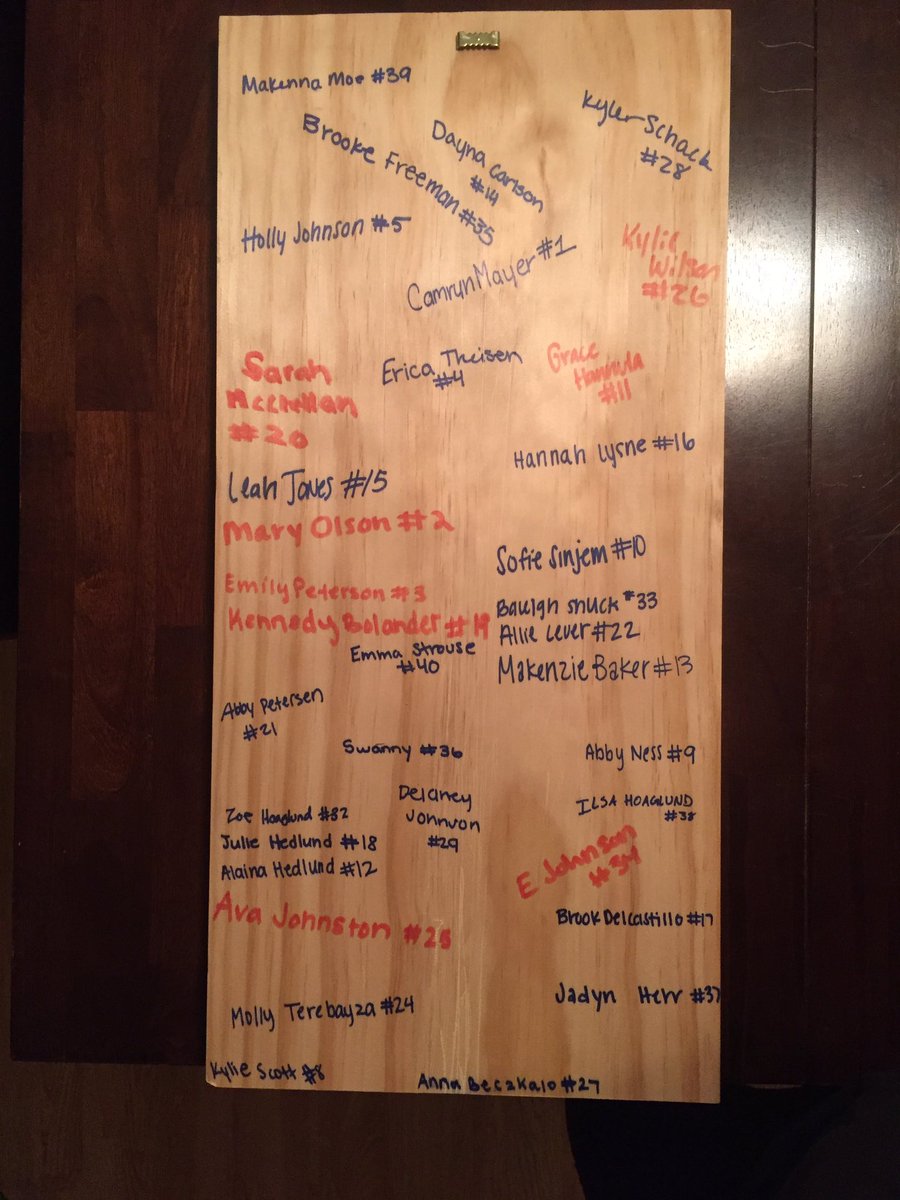 Makenna Moe #39
Kyler Schack
#28
Brooke Freeman #35
Dayna Carlson
#14
Holly Johnson #5
Camryn Mayer #1
Kylie
Wilson
#26
Sarah
McClellan
#20
Erica Theisen
#4
Grace
Hannula
#11
Hannah Lysne #16
Leah Jones #15
Mary Olson #2
Sofie Sinjem #10
Emily Peterson #3
Kennedy Bolander #19
Bauigh Shuck #33
Allie Lever #22
Emma Strouse
#40
Makenzie Baker #13
Abby Petersen
#21
Swanny #36
Abby Ness #9
Zoe Hoaglund #32
Julie Hedlund #18
Alaina Hedlund #12
Delaney
Johnson
#29
ILSA HOAGLUND
#38
E Johnson
#34
Ava Johnston #25
Brook Delcastillo #17
Molly Terebayza #24
Jadyn Herr #37
Kylie Scott #8
Anna Beczkalo #27